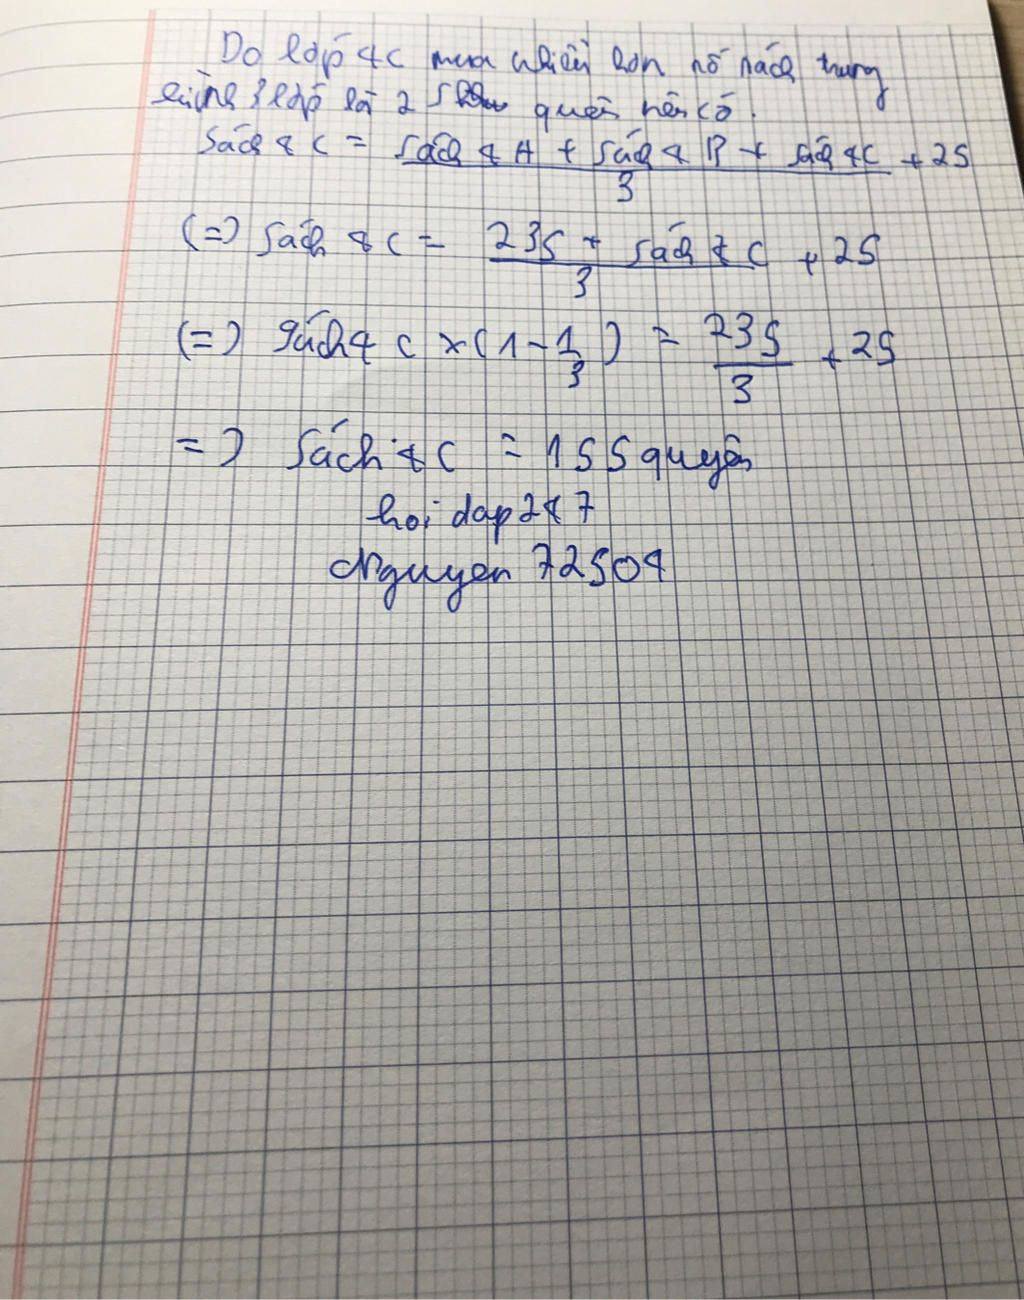 Do lớp 4C mua nhiều hơn số sách trung
bình 3 lớp là 25 quển nên có.
Sách 4C = Sách 4A + Sách 4B + Sách 4C / 3 + 25
(=) Sách 4C = 235 + Sách 4C / 3 + 25
(=) Sách 4C × (1 - 1/3) = 235/3 + 25
=) Sách 4C = 155 quyển
hoi dap 247
Nguyen 72504